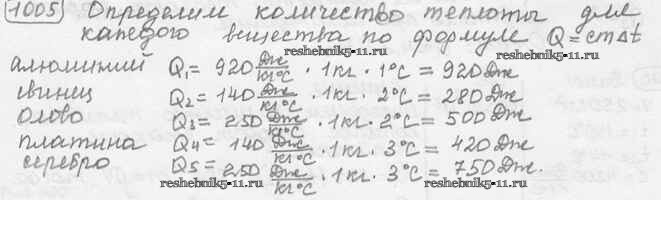 1005 Определим количество теплоты для
каждого вещества по формуле Q = cmΔt
reshebnik5-11.ru
алюминий Q₁ = 920 Дж/кг°С · 1кг · 1°С = 920 Дж
свинец Q₂ = 140 Дж/кг°С · 1кг · 2°С = 280 Дж
олово Q₃ = 250 Дж/кг°С · 1кг · 2°С = 500 Дж
платина Q₄ = 140 Дж/кг°С · 1кг · 3°С = 420 Дж
серебро Q₅ = 250 Дж/кг°С · 1кг · 3°С = 750 Дж.
reshebnik5-11.ru reshebnik5-11.ru